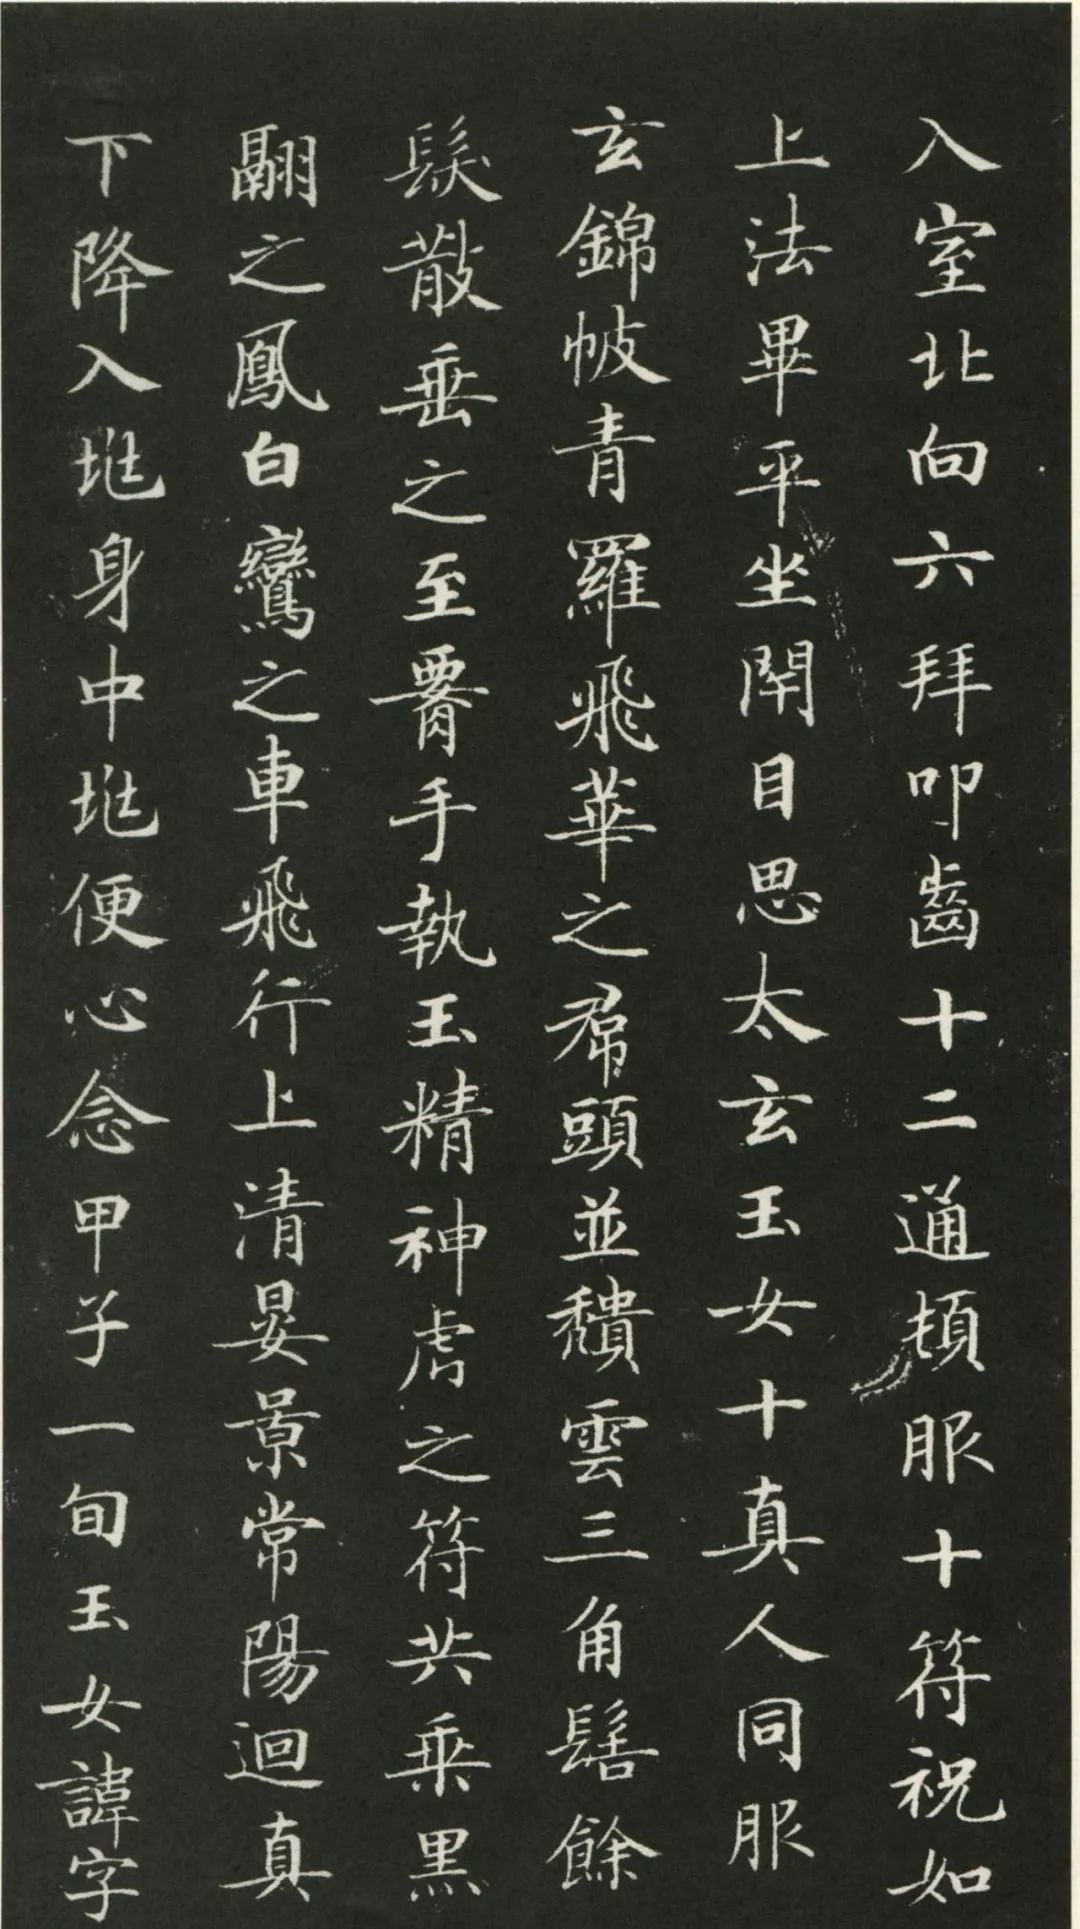 入室北向六拜叩齒十二通頓服十符祝如
上法畢平坐閇目思太玄玉女十真人同服
玄錦帔青羅飛華之帬頭並穨雲三角髻餘
髮散垂之至署手執玉精神虎之符共乘黑
翮之鳳白鸞之車飛行上清晏景常陽迴真
下降入地身中地便心念甲子一旬玉女諱字